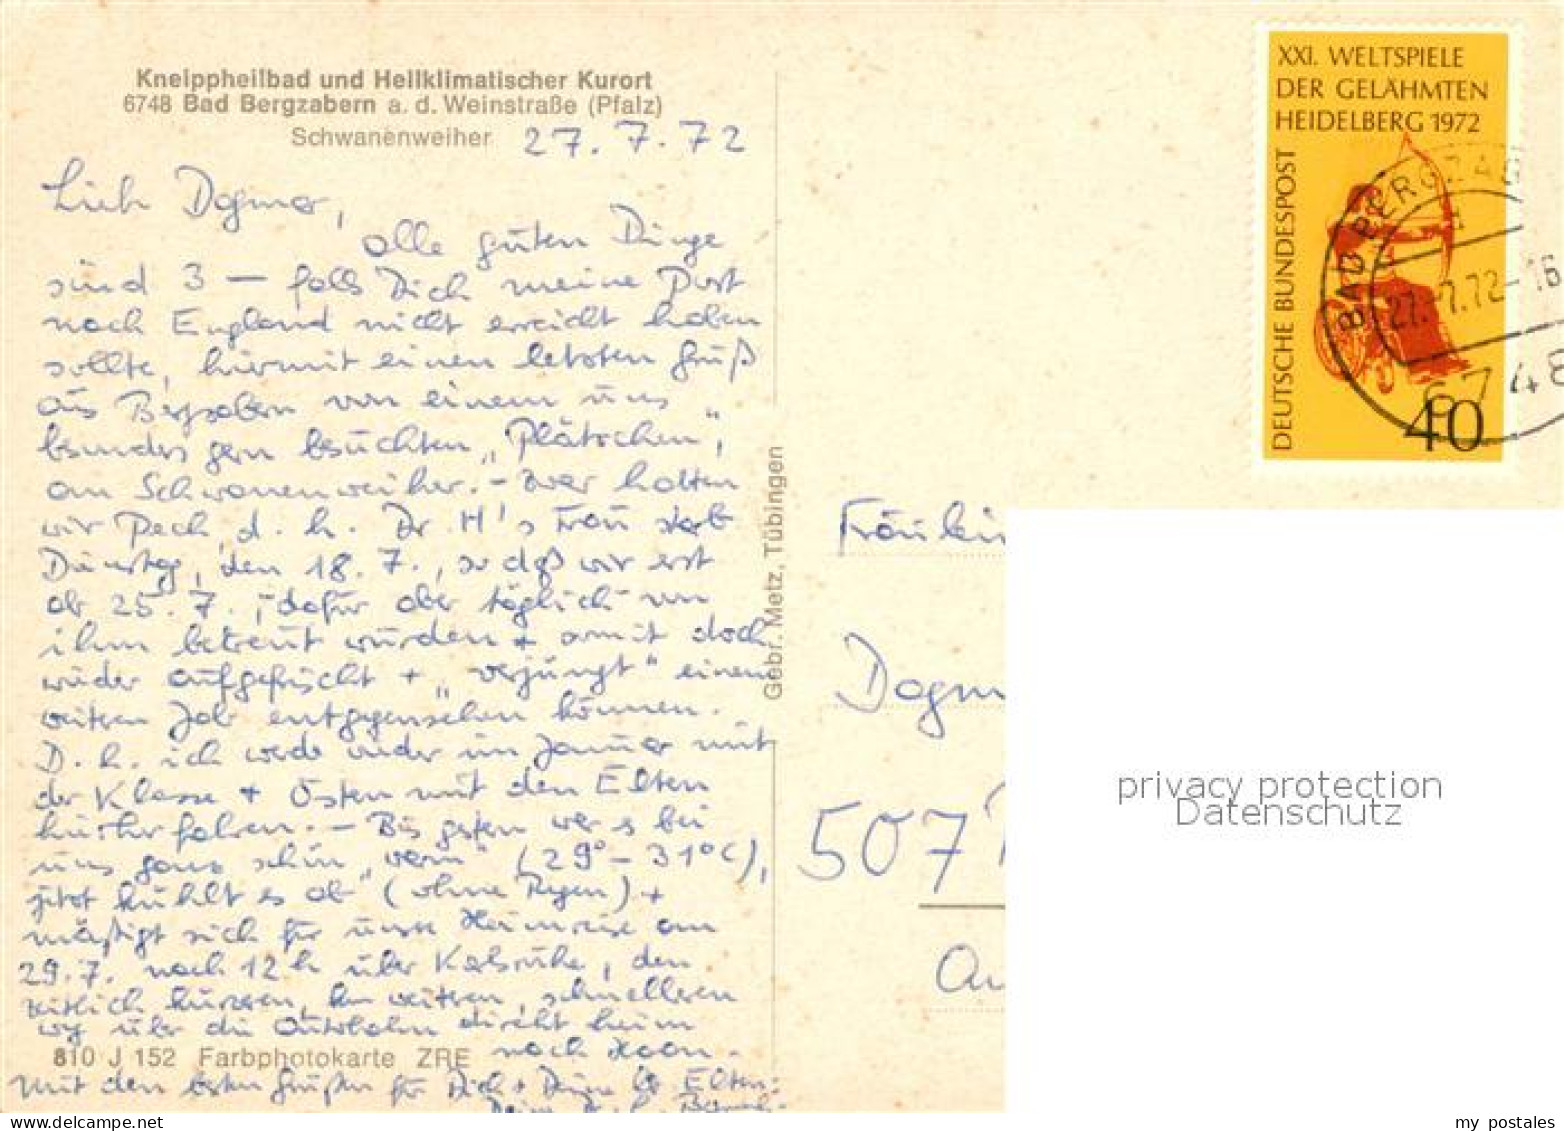 Kneippheilbad und Heilklimatischer Kurort
6748 Bad Bergzabern a. d. Weinstraße (Pfalz)
Schwanenweiher
27. 7. 72
Liebe Dagmar,
alle guten Dinge
sind 3 — falls Dich meine Post
nach England nicht erreicht haben
sollte, hiermit einen letzten Gruß
aus Bergzabern von einem uns
besonders gern besuchten „Plätzchen",
am Schwanenweiher. - Zwar hatten
wir Pech, d. h. Dr. H's Frau starb
Dienstag, den 18. 7., so daß wir erst
ab 25. 7., dafür aber täglich von
ihm betreut wurden + somit doch
wieder aufgefrischt + „verjüngt" einem
weiteren Jahr entgegensehen können.
D. h. ich werde wieder im Januar mit
der Klasse + Ostern mit den Eltern
hierher fahren. - Bis gestern war es bei
uns ganz schön „warm" (29° - 31° C),
jetzt kühlt es ab (ohne Regen) +
mäßigt sich für unsere Heimreise am
29. 7. nach 12 h über Karlsruhe, den
zeitlich kürzeren, km weiteren, schnelleren
Weg über die Autobahn direkt heim
nach Haan.
Mit den besten Grüßen für Dich + Deine lb. Eltern:
Deine
810 J 152 Farbphotokarte ZRE
Gebr. Metz, Tübingen
XXI. WELTSPIELE
DER GELÄHMTEN
HEIDELBERG 1972
DEUTSCHE BUNDESPOST
40
BAD BERGZAB
27.-7.72-16
6748
Fräulein
Dagm
507
privacy protection
Datenschutz
my postales